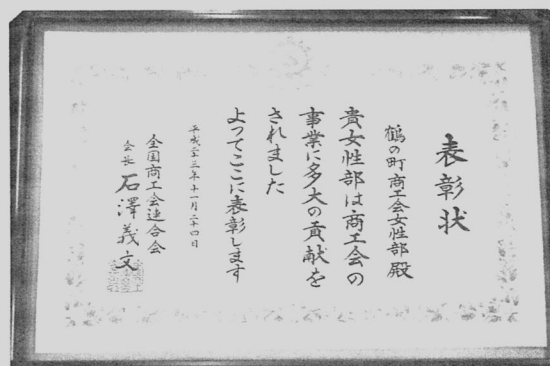 表彰状
鶴の町商工会女性部 殿
貴女性部は商工会の
事業に多大の貢献を
されました
よってここに表彰します
平成二十三年十一月二十四日
全国商工会連合会
会長 石澤義文